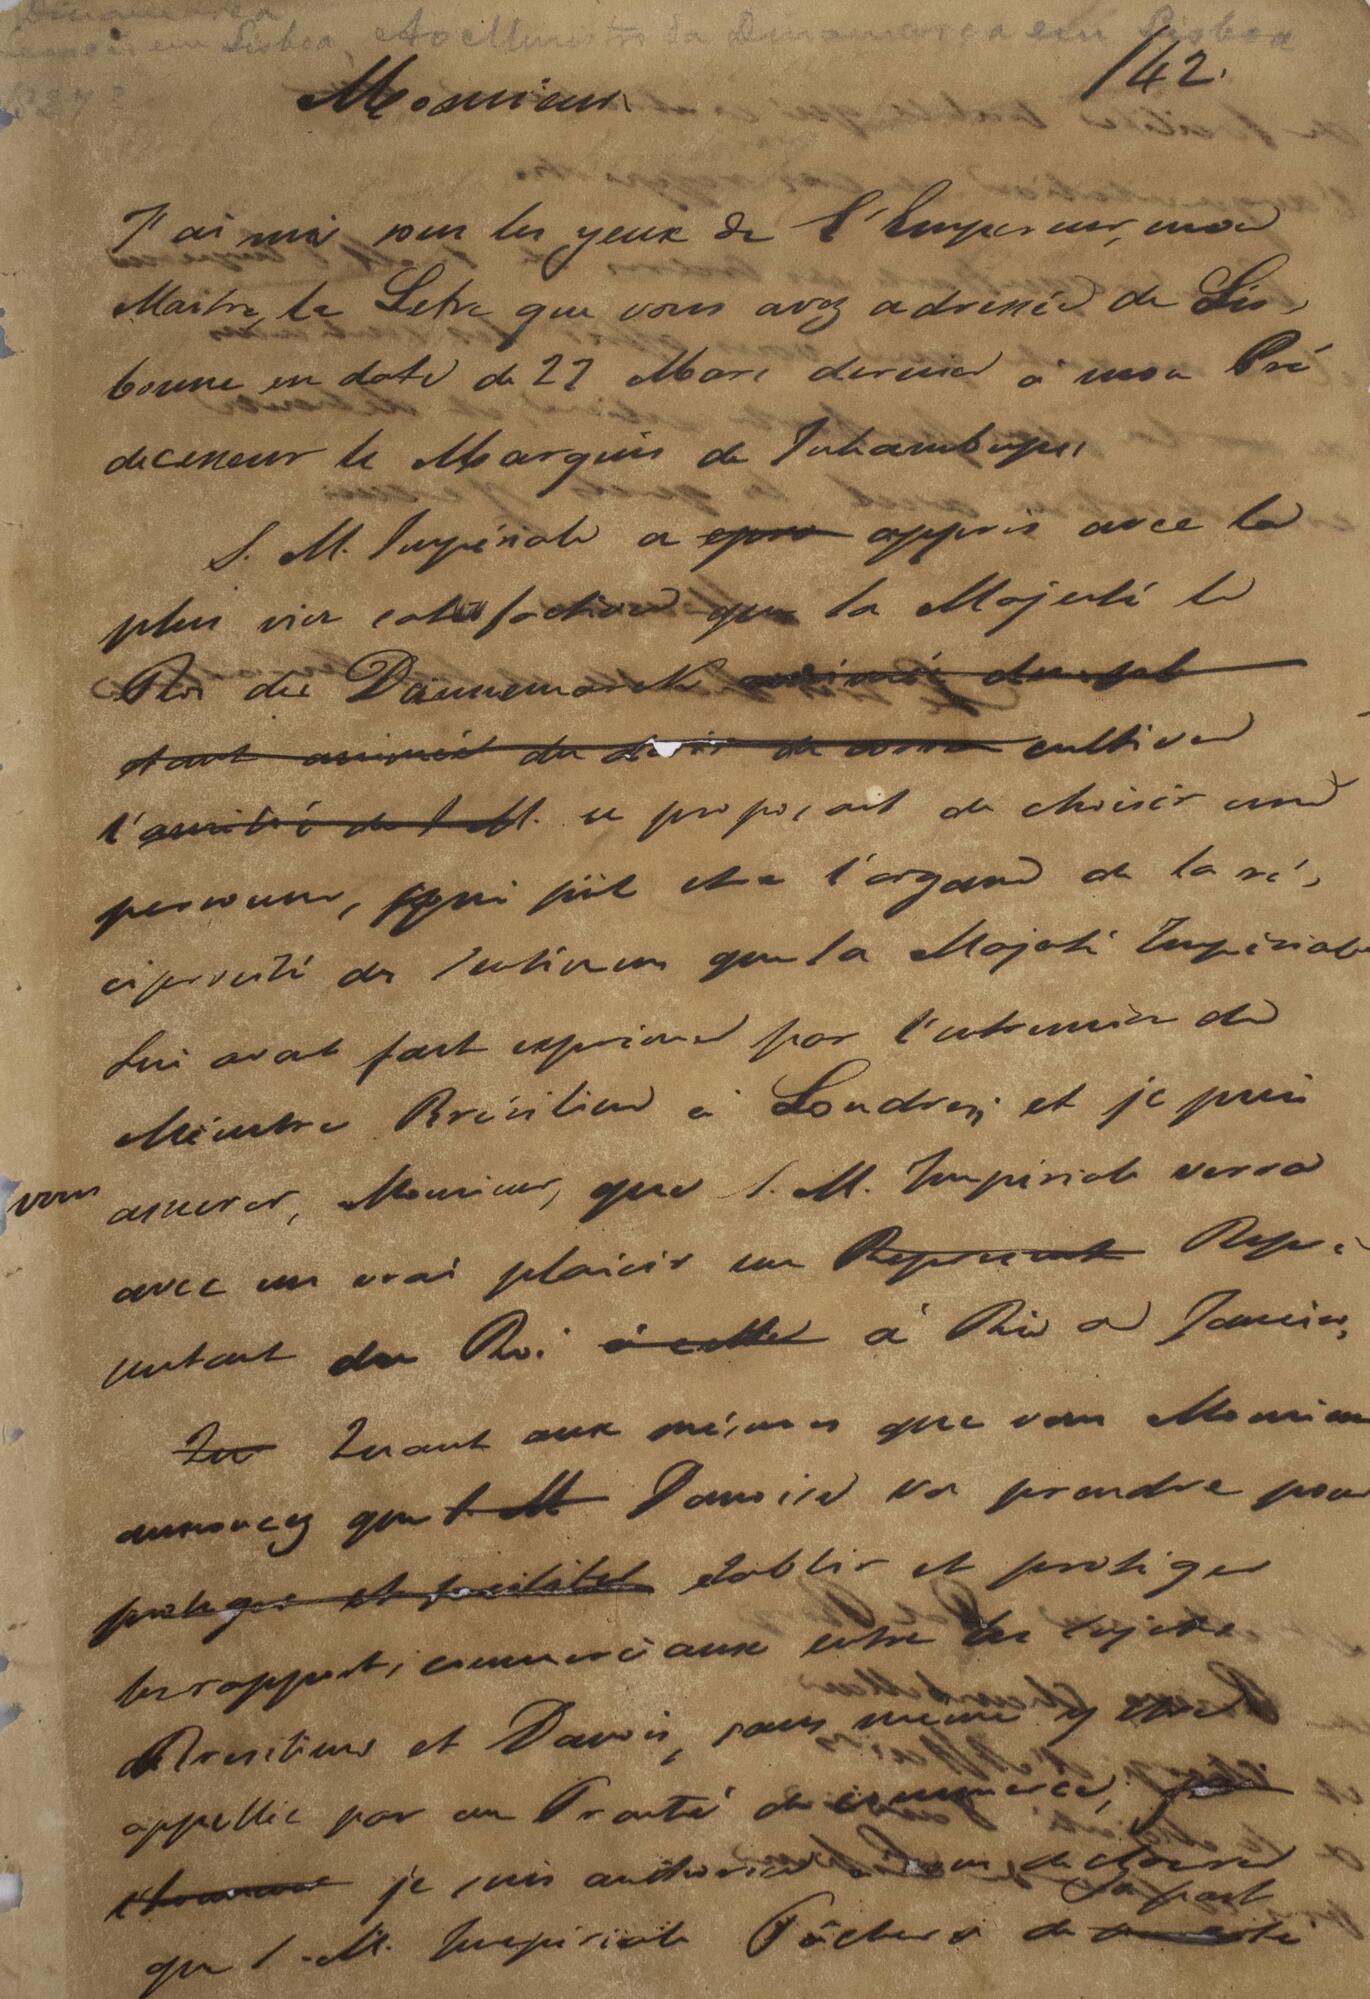 Dinamarca
em Lisboa Ao Ministro da Dinamarca em Lisboa
142.
Monsieur
J'ai mis sous les yeux de l'Empereur, mon
Maitre, la Letre que vous avez adressée de Lis-
bonne en date de 27 Mars dernier a mon Pré
decesseur le Marquis de Inhambupe.
S. M. Impériale a appris avec la
plus vive satisfaction que Sa Majesté le
Roi du Dannemarck
etant animé du desir de cultiver
l'amitié de S. M. se proposait de choisir une
personne, qui fût etre l'organe de la ré-
ciprocité des sentimens que Sa Majesté Impériale
Lui avait fait exprimer par l'entremise du
Ministre Brésilien à Londres; et je puis
vous assurer, Monsieur, que S. M. Impériale verra
avec un vrai plaisir un Represent Repré
sentant du Roi à cette à Rio de Janeiro.
Quant aux mésures que vous Monsieur
annoncez que S. M. Danoise va prendre pour
proteger et faciliter établir et protéger
les rapports commerciaux entre les sujets
Bresiliens et Danois, sans même y etre
appellée par un Traité de commerce,
je suis authorisé a vous declarer
que S. M. Impériale tâchera de sa part